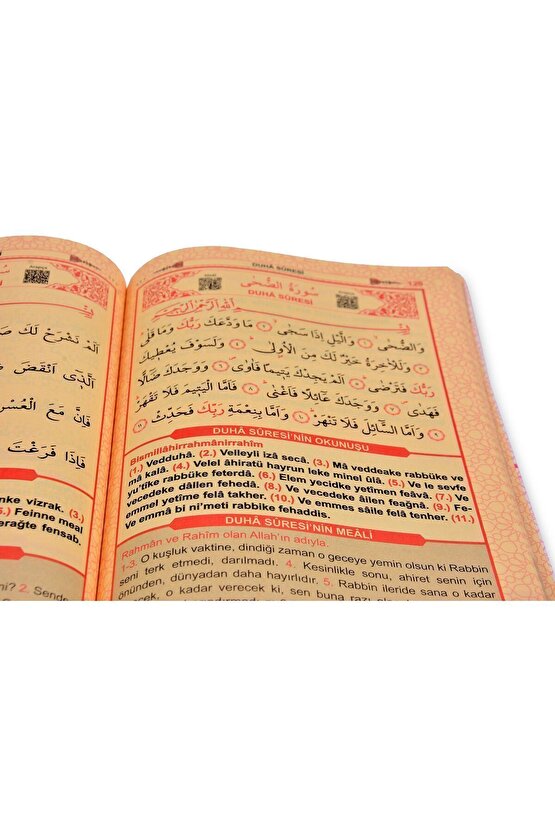 DUHÂ SÛRESİ
128
سُورَةُ الضُّحٰى
DUHÂ SÛRESİ
وَالضُّحٰىۙ ١ وَالَّيْلِ اِذَا سَجٰىۙ ٢ مَا وَدَّعَكَ رَبُّكَ وَمَا قَلٰىۜ
٣ وَلَلْاٰخِرَةُ خَيْرٌ لَكَ مِنَ الْاُو۫لٰىۜ ٤ وَلَسَوْفَ يُعْط۪يكَ
رَبُّكَ فَتَرْضٰىۜ ٥ اَلَمْ يَجِدْكَ يَت۪يمًا فَاٰوٰىۖ ٦ وَوَجَدَكَ ضَٓالًّا
فَهَدٰىۖ ٧ وَوَجَدَكَ عَٓائِلًا فَاَغْنٰىۜ ٨ فَاَمَّا الْيَت۪يمَ فَلَا تَقْهَرْۜ
٩ وَاَمَّا السَّٓائِلَ فَلَا تَنْهَرْۜ ١٠ وَاَمَّا بِنِعْمَةِ رَبِّكَ فَحَدِّثْ ١١
DUHÂ SÛRESİ'NİN OKUNUŞU
Bismillâhirrahmânirrahîm
(1.) Vedduhâ. (2.) Velleyli izâ secâ. (3.) Mâ veddeake rabbüke ve
mâ kalâ. (4.) Velel âhiratü hayrun leke minel ûlâ. (5.) Ve le sevfe
yu'tîke rabbüke feterdâ. (6.) Elem yecidke yetîmen feâvâ. (7.) Ve
vecedeke dâllen fehedâ. (8.) Ve vecedeke âilen feağnâ. (9.) Fe-
emmel yetîme felâ takher. (10.) Ve emmes sâile felâ tenher. (11.)
Ve emmâ bi ni'meti rabbike fehaddis.
DUHÂ SÛRESİ'NİN MEÂLİ
Rahmân ve Rahîm olan Allah'ın adıyla.
1-3. O kuşluk vaktine, dindiği zaman o geceye yemin olsun ki Rabbin
seni terk etmedi, darılmadı. 4. Kesinlikle sonu, ahiret senin için
önünden, dünyadan daha hayırlıdır. 5. Rabbin ileride sana o kadar
verecek ki, sen buna razı
اَلَمْ نَشْرَحْ لَكَ
اَلَّذ۪ٓي اَنْقَضَ
فَاِنَّ مَعَ الْعُسْرِ
فَاِذَا فَرَغْتَ
nke vizrak. (3.)
5.) Feinne meal
erağte fensab.
2. Sende